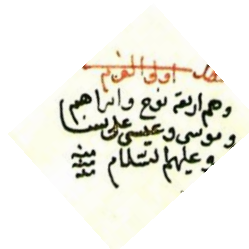 اولو العزم
وهم اربعة نوح وابراهيم
وموسى وعيسى على نبينا
وعليهم السلام